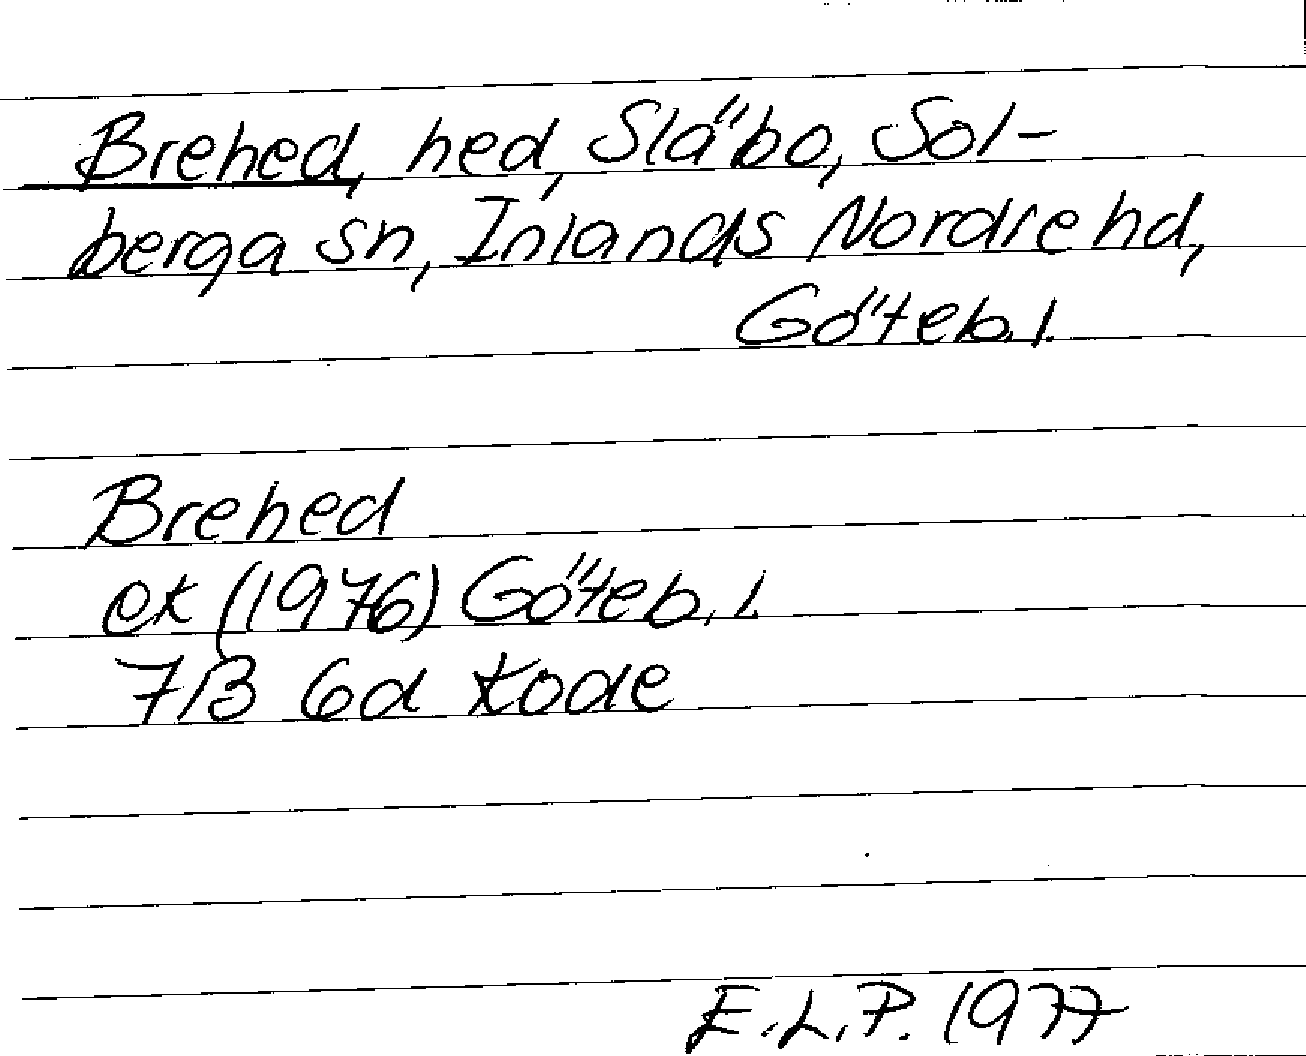 Brehed, hed, Släbo, Sol-
berga sn, Inlands Nordre hd,
Göteb. l.
Brehed
ek (1976) Göteb. l.
7B 6d Kode
E.L.P. 1977